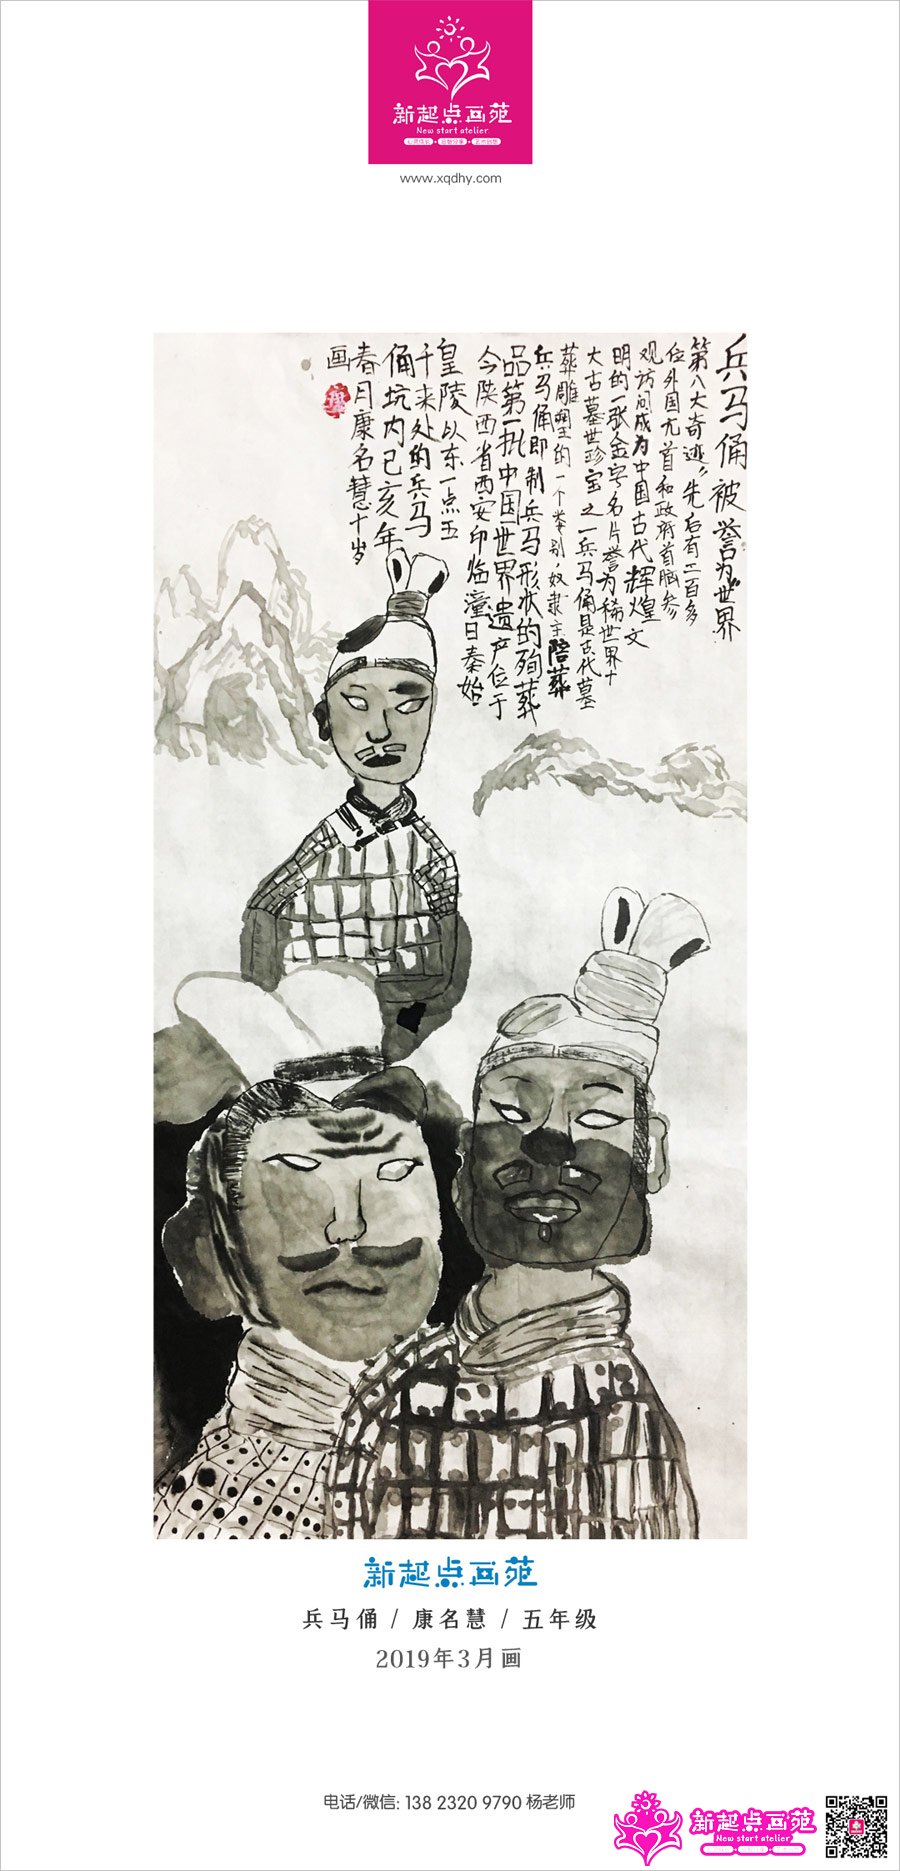 新起点画苑
New start atelier
www.xqdhy.com
兵马俑被誉为"世界
第八大奇迹"先后有二百多
位外国元首和政府首脑参
观访问成为中国古代辉煌文
明的一张金字名片誉为稀世界十
大古墓世珍宝之一兵马俑是古代墓
葬雕塑的一个类别,奴隶主陪葬
兵马俑即制兵马形状的殉葬
品第一批中国世界遗产位于
今陕西省西安印临潼日秦始
皇陵以东一点五
千米处的兵马
俑坑内己亥年
春月康名慧十岁
画
新起点画苑
兵马俑 / 康名慧 / 五年级
2019年3月画
电话/微信: 138 2320 9790 杨老师
新起点画苑
New start atelier